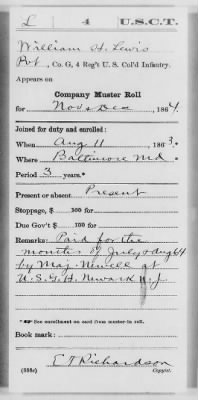 L 4 U.S.C.T.
William H. Lewis
Pvt, Co. G, 4 Reg't U. S. Col'd Infantry.
Appears on
Company Muster Roll
for Nov & Dec, 1864.
Joined for duty and enrolled:
When Aug 11, 1863.*
Where Baltimore Md
Period 3 years.*
Present or absent Present
Stoppage, $ 100 for
Due Gov't $ 100 for
Remarks: Paid for the
months of July & Aug 64
by Maj. Newell at
U.S.G.H. Newark N.J
*See enrollment on card from muster-in roll.
Book mark:
E T Richardson
(358c) Copyist.